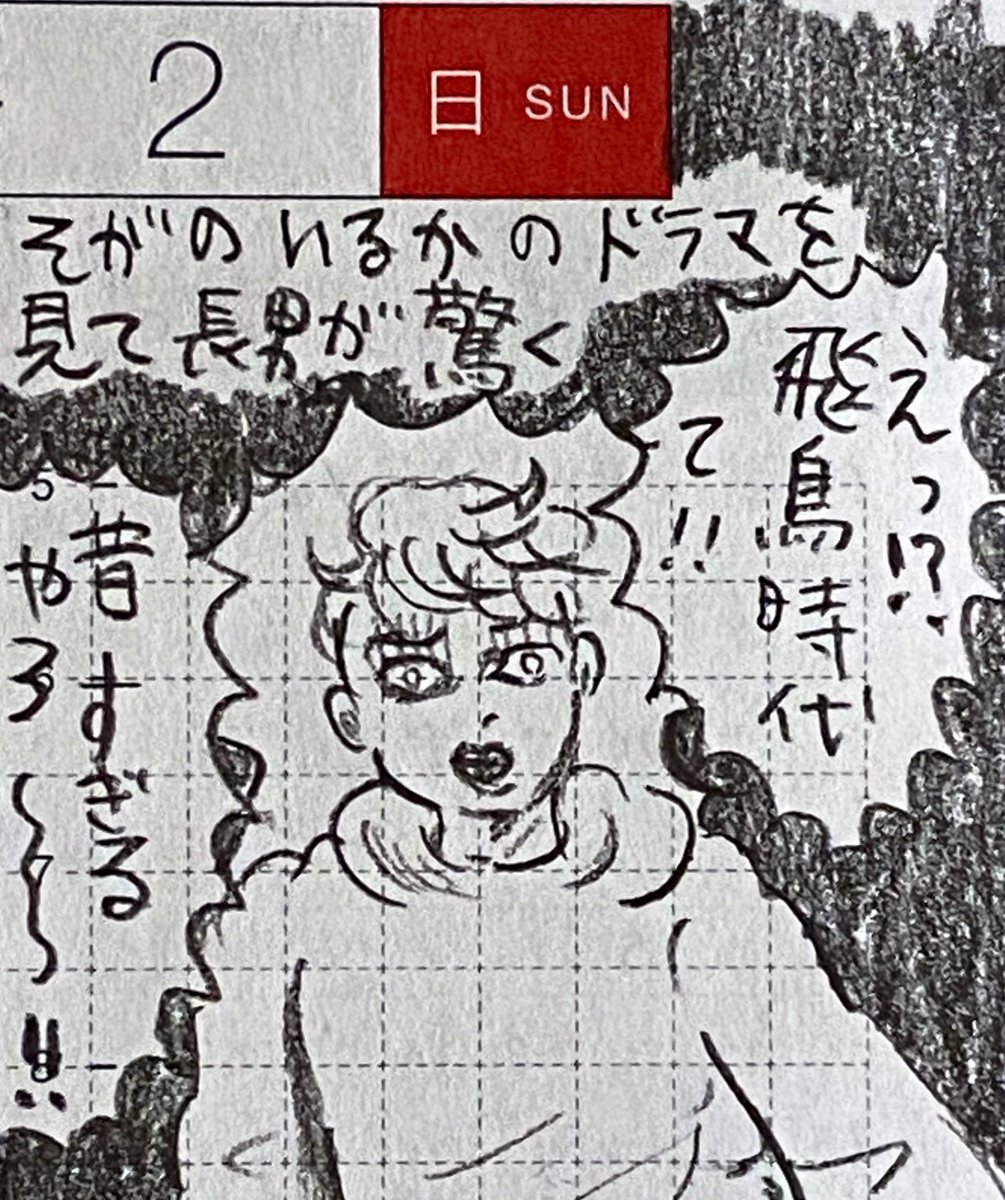 2 日 SUN
そがのいるかのドラマを
見て長男が驚く
えっ!?
飛鳥時代
て!!
昔すぎる
やろ〜〜!!
5
6
7
8